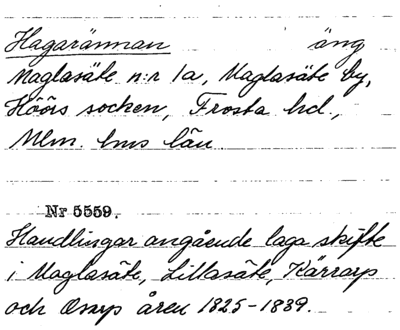 Hagarännan äng
Maglasäte n:r 1a, Maglasäte by,
Höörs socken, Frosta hd.,
Mlm. hus län
Nr 5559.
Handlingar angående laga skifte
i Maglasäte, Lillasäte, Kärrarp
och Osarp åren 1825-1839.